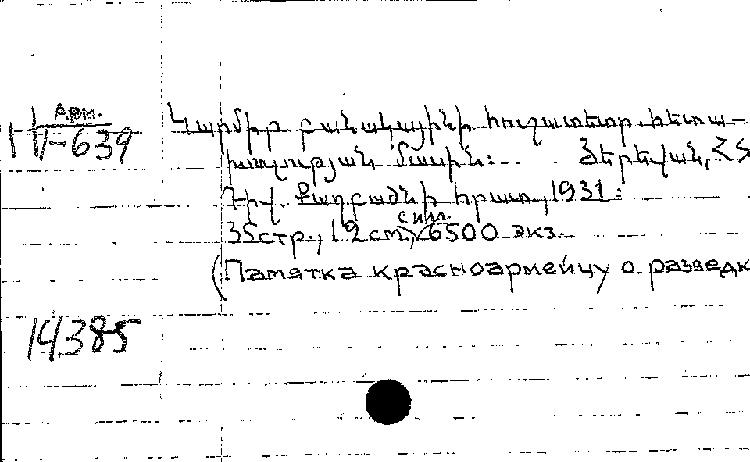 Арм.
V-639
Կարմիր բանակայինի հուշատետր հետա-
խուզության մասին: Յերեվան, ՀՍ
Դիվ. Քաղբաժնի հրատ., 1931:
с илл.
35стр., 12см, 6500 экз.
(Памятка красноармейцу о разведк
14385